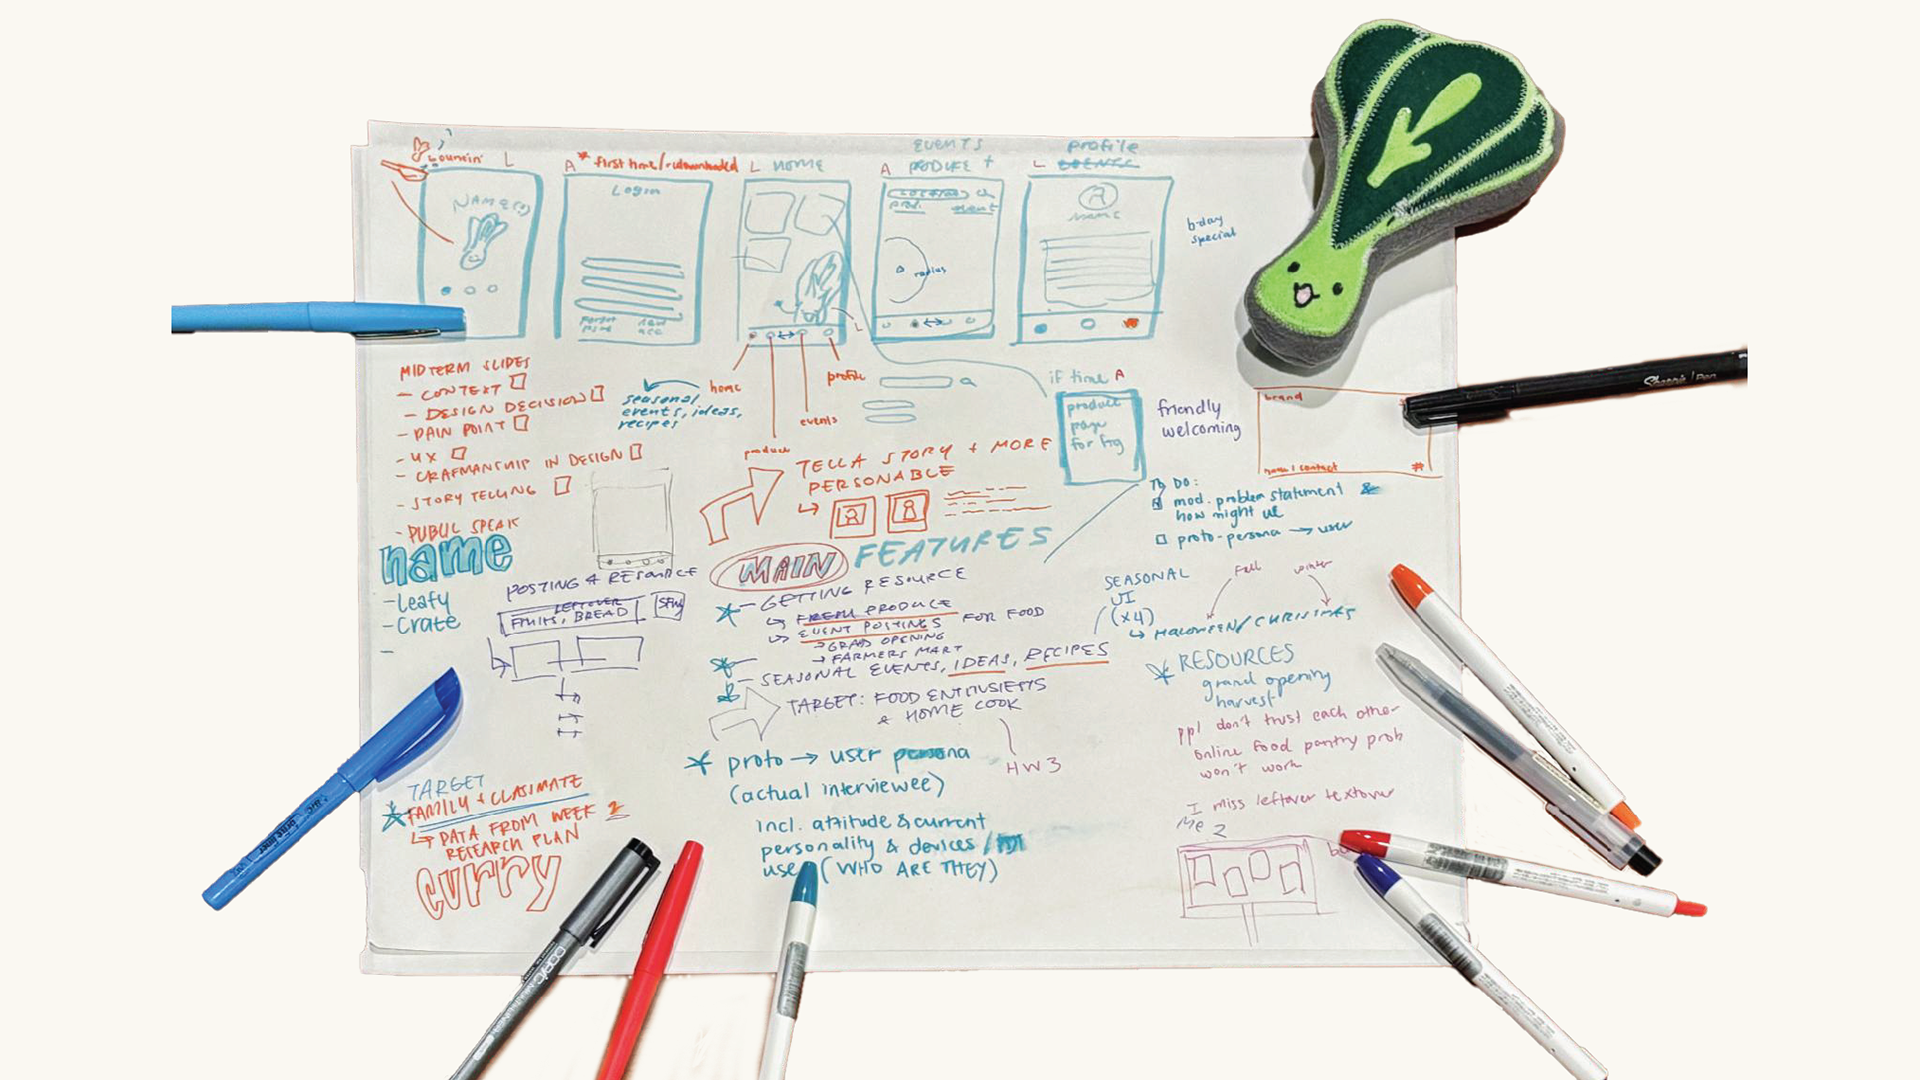 L
A * first time/
L HOME
A EVENTS
PRODUCE +
profile
L EVENTS
NAME(S)
Login
Forgot
new
acc
prod.
event
radius
NAME
b-day
special
MIDTERM SLIDES
- CONTEXT
- DESIGN DECISION
- PAIN POINT
- UX
- CRAFMANSHIP IN DESIGN
- STORY TELLING
- PUBLIC SPEAK
seasonal
events, ideas,
recipes
home
produce
events
profile
if time A
product
page
for
friendly
welcoming
brand
name/contact
#
Sharpie Pen
TELL A STORY + MORE
PERSONABLE
TO DO:
mod. problem statement &
how might we
proto-persona → user
name
- Leafy
- Crate
-
POSTING & RESOURCE
LEFTOVER
FRUITS, BREAD
MAIN FEATURES
- GETTING RESOURCE
↳ FRESH PRODUCE
↳ EVENT POSTINGS FOR FOOD
→ GRAD OPENING
→ FARMERS MART
- SEASONAL EVENTS, IDEAS, RECIPES
TARGET: FOOD ENTHUSIESTS
& HOME COOK
HW3
SEASONAL
UI
(x4)
fall
winter
↳ HALOWEEN/CHRISTMAS
* RESOURCES
grand opening
harvest
ppl don't trust each other
online food pantry prob
won't work
I miss leftover textover
Me 2
* proto → user persona
(actual interviewee)
incl. attitude & current
personality & devices /
use (WHO ARE THEY)
TARGET
* FAMILY + CLASSMATE
↳ DATA FROM WEEK 2
RESEARCH PLAN
curry
COPIC